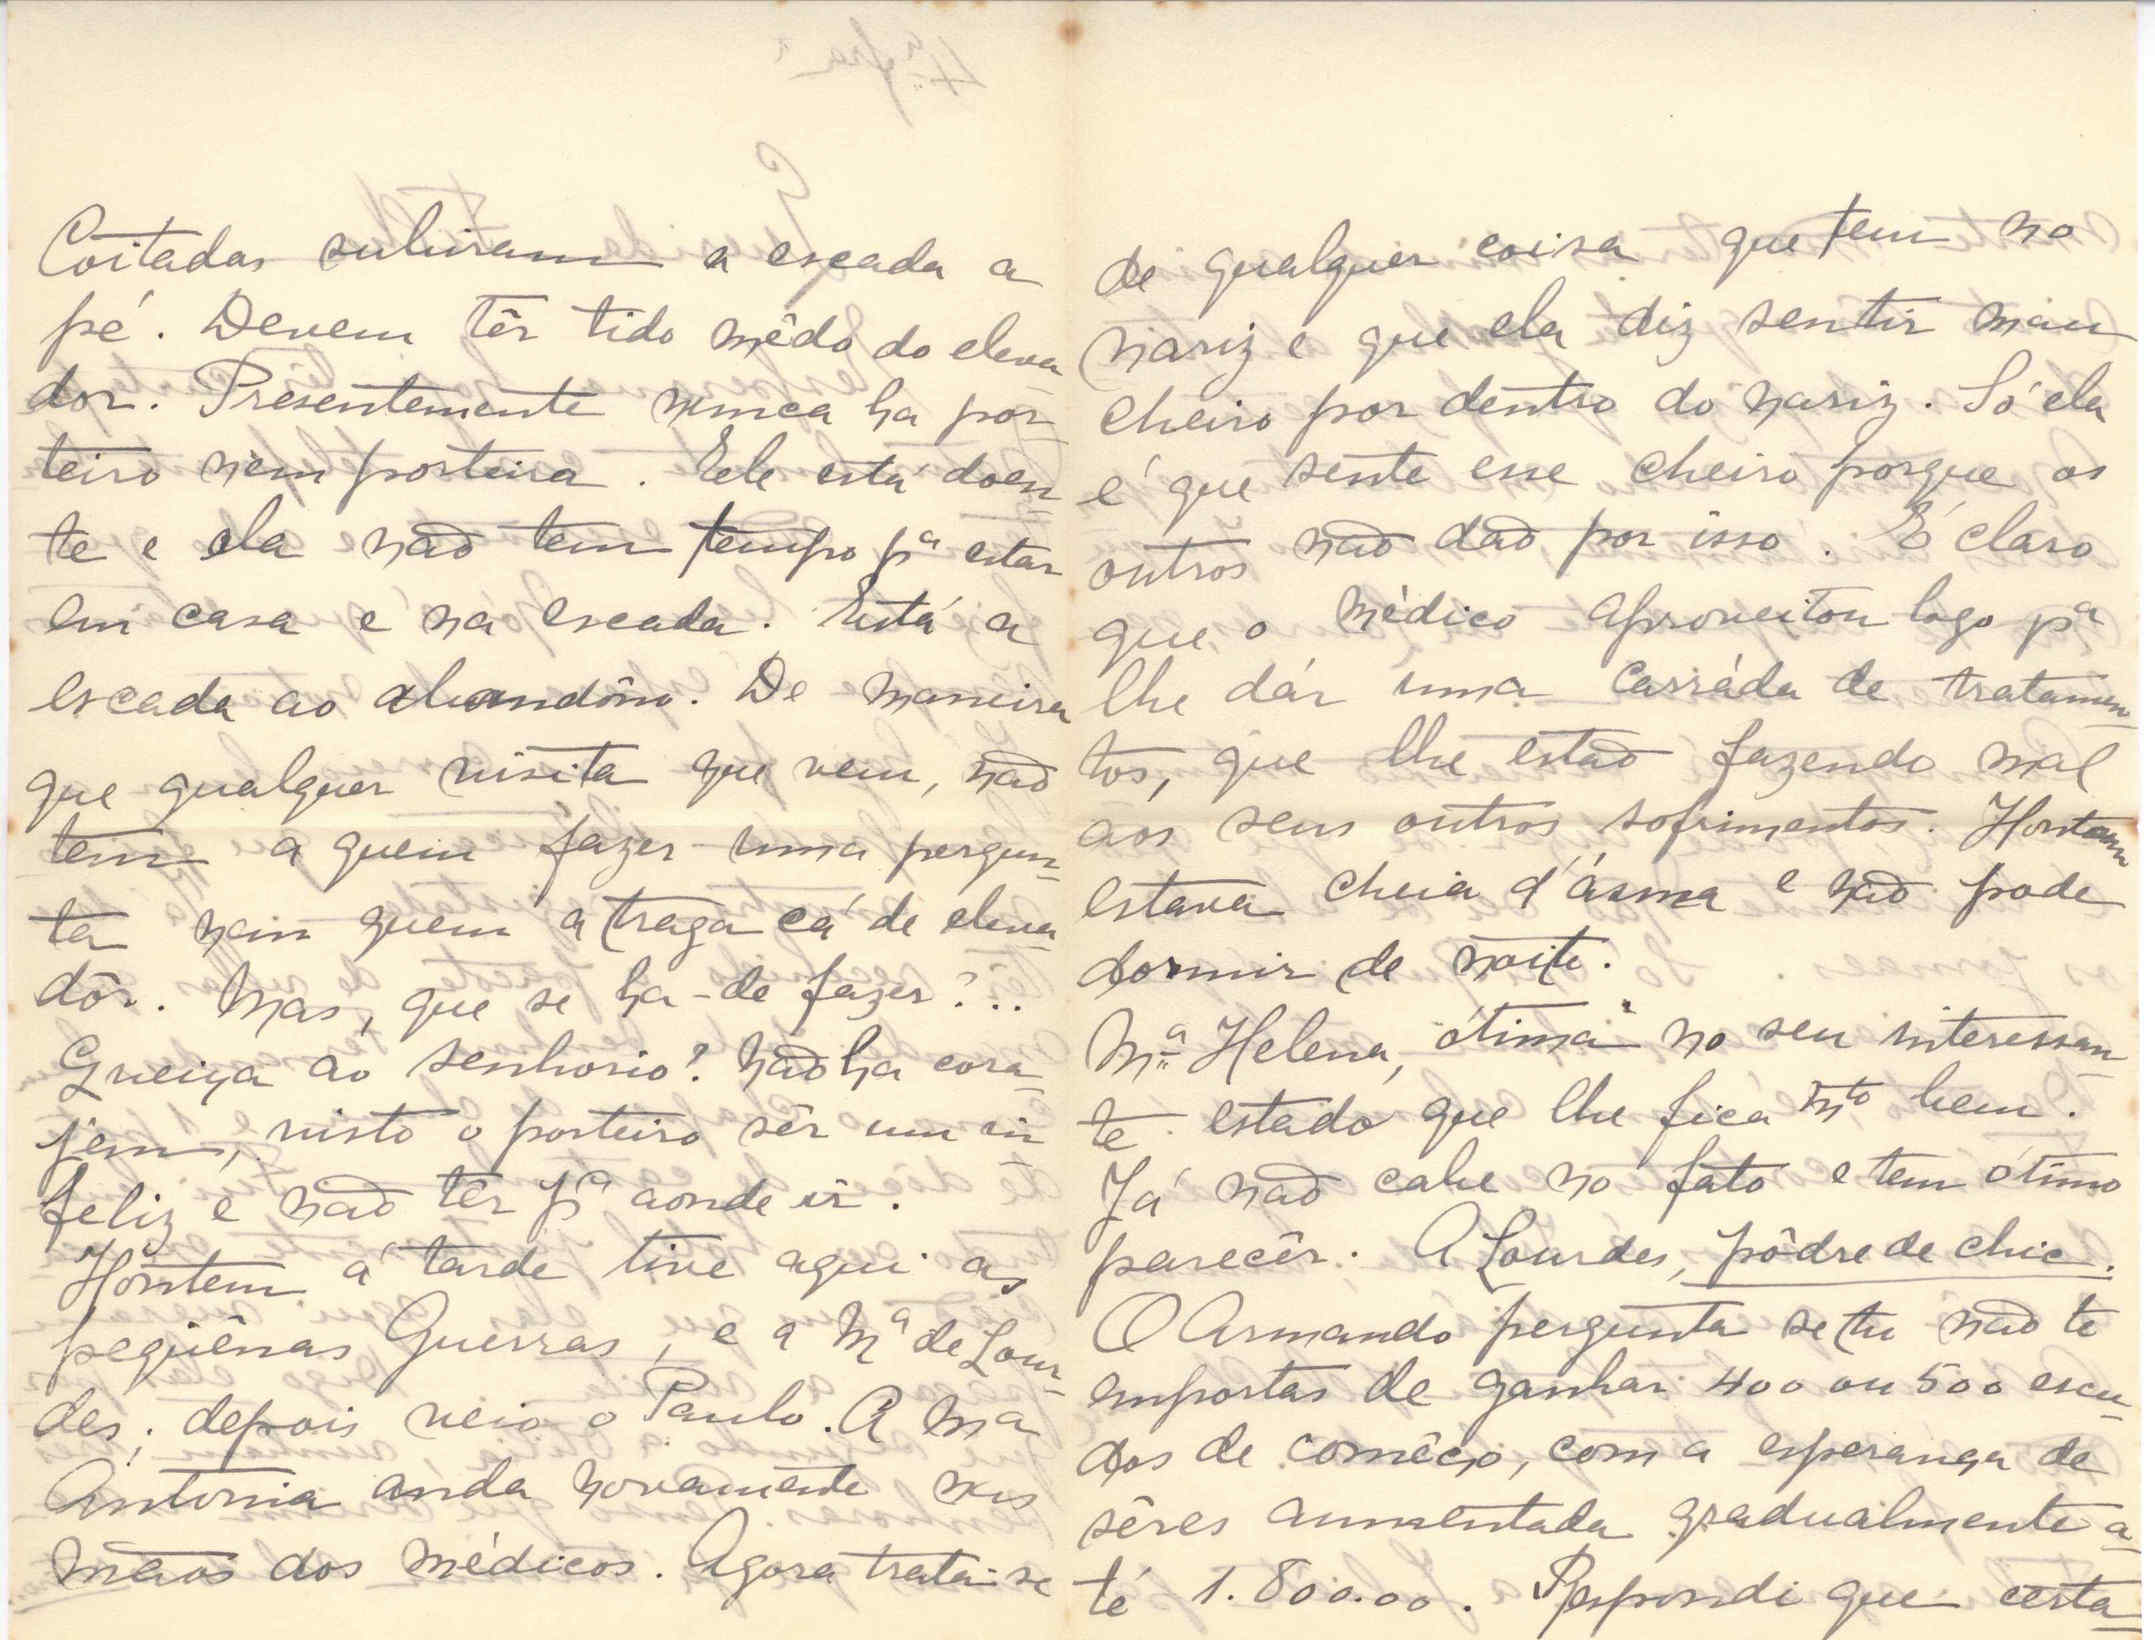 Coitadas subiram a escada a
pé. Devem têr tido mêdo do eleva
dor. Presentemente nunca ha por-
teiro nem porteira. Ele está doen-
te e ela não tem tempo pª estar
em casa e na escada. Está a
escada ao abandôno. De maneira
que qualquer visita que vem, não
tem a quem fazer uma pergun-
ta nem quem a traga cá de eleva-
dôr. Mas, que se ha-de fazer?...
Queixa ao senhorio? Não ha cora-
jem, visto o porteiro sêr um in-
feliz e não têr pª aonde ir.
Hontem á tarde tive aqui as
peqüênas Guerras, e a Mª de Lour-
des; depois veio o Paulo. A Mª
Antonia anda novamente nas
mãos dos médicos. Agora trata-se
de qualquer coisa que tem no
nariz e que ela diz sentir mau
cheiro por dentro do nariz. Só ela
é que sente esse cheiro porque os
outros não dão por isso. É claro
que o médico aproveitou logo pª
lhe dár uma carráda de tratamen-
tos, que lhe estão fazendo mal
aos seus outros sofrimentos. Hontem
estava cheia d'ásma e não pode
dormir de noite.
Mª Helena, ótima no seu interessan-
te estado que lhe fica mto bem.
Já não cabe no fato e tem ótimo
parecêr. A Lourdes, pôdre de chic.
O Armando pergunta se tu não te
importas de ganhar 400 ou 500 escu-
dos de comêço, com a esperança de
sêres aumentada gradualmente a-
té 1.800.00. Respondi que certa-